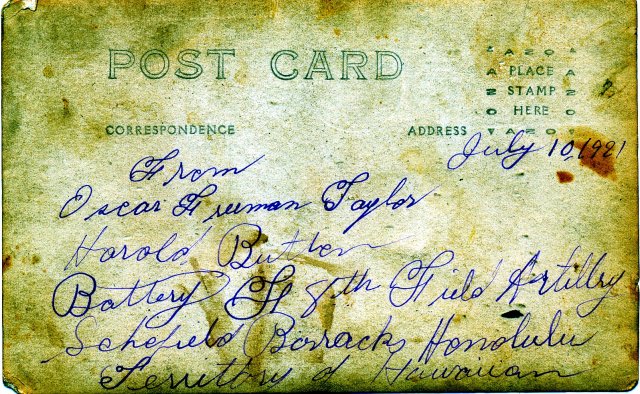 POST CARD
AZO
PLACE
STAMP
HERE
AZO
CORRESPONDENCE
ADDRESS
July 10, 1921
From
Oscar Freeman Taylor
Harold Butlen
Battery F 8th Field Artillry
Schefield Borracks Honolulu
Territory of Hawaiian